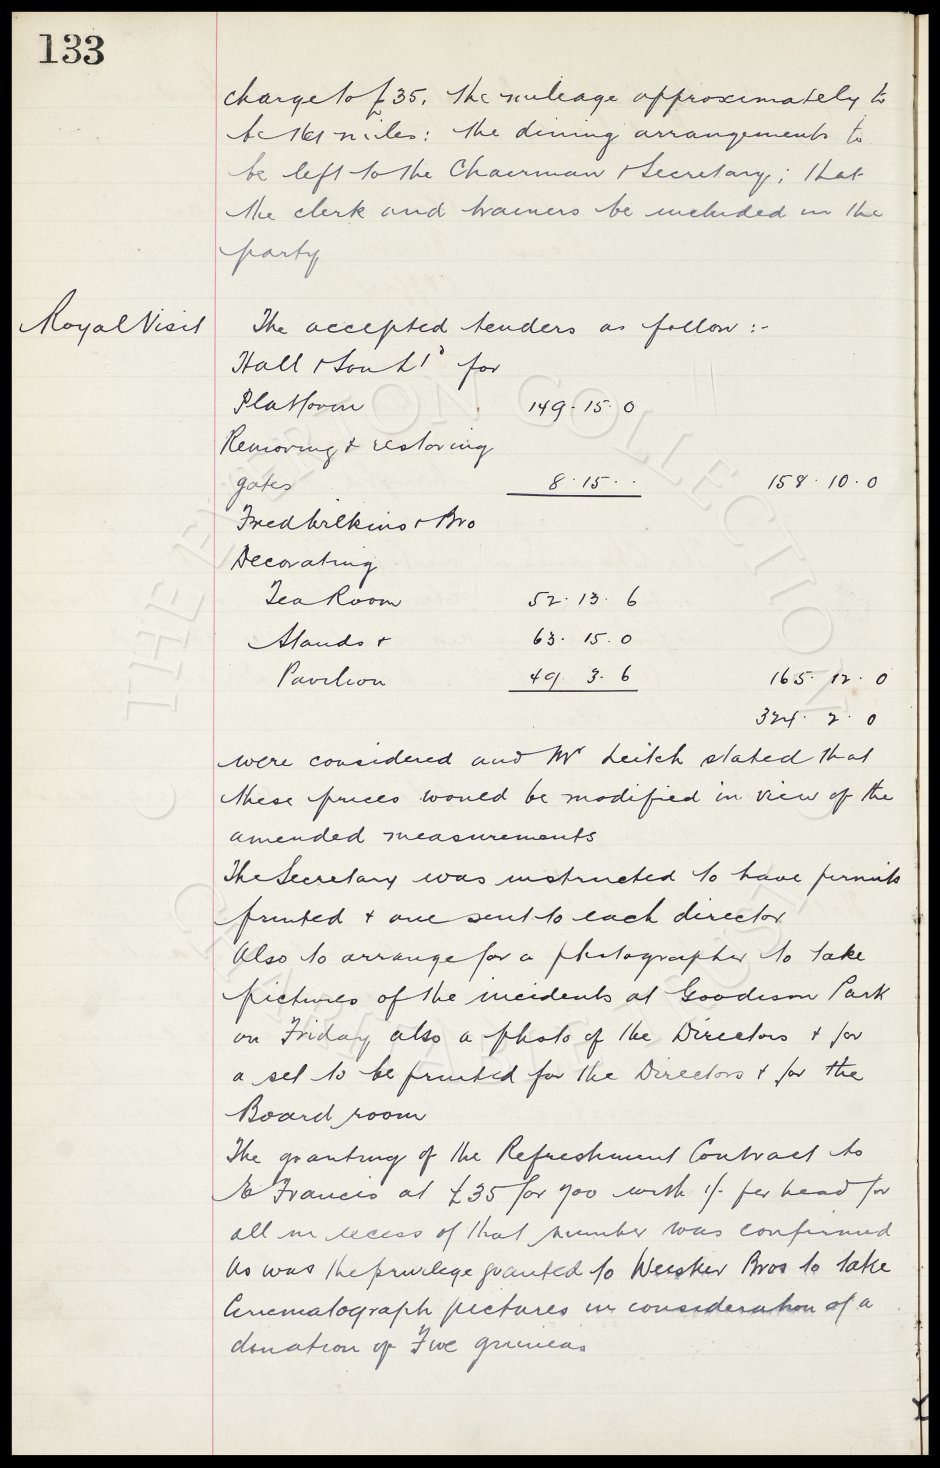 133
charge to £35. the mileage approximately to
be 161 miles: the dining arrangements to
be left to the Chairman & Secretary; that
the clerk and trainers be included in the
party
Royal Visit
The accepted tenders as follow :-
Hall & Son Ld for
Platform 149. 15. 0
Removing & restoring
gates 8. 15. . 158. 10. 0
Fred Wilkins & Bro
Decorating
Tea Room 52. 13. 6
Stands & 63. 15. 0
Pavilion 49. 3. 6 165. 12. 0
324. 2. 0
were considered and Mr Leitch stated that
these prices would be modified in view of the
amended measurements
The Secretary was instructed to have permits
printed & one sent to each director
Also to arrange for a photographer to take
pictures of the incidents at Goodison Park
on Friday also a photo of the Directors & for
a set to be printed for the Directors & for the
Board room
The granting of the Refreshment Contract to
E Francis at £35 for 700 with 1/- per head for
all in excess of that number was confirmed
As was the privilege granted to Weisker Bros to take
Cinematograph pictures in consideration of a
donation of Five guineas
© THE EVERTON COLLECTION